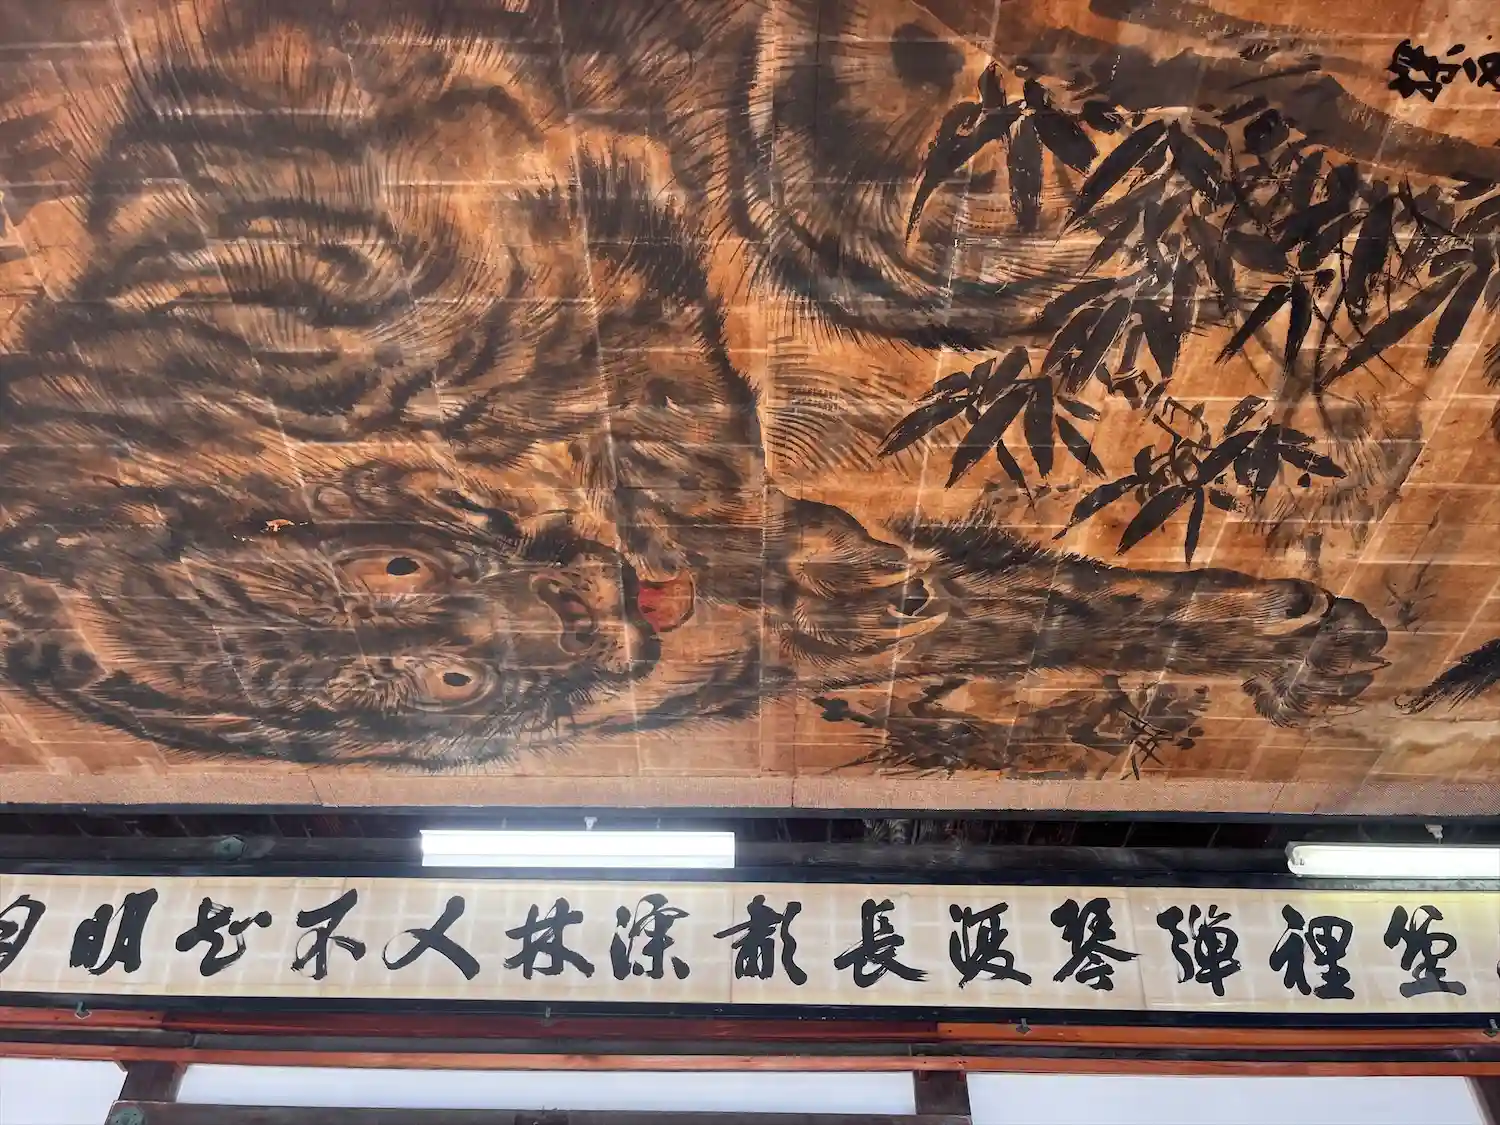 篁裡彈琴復長嘯深林人不知明月